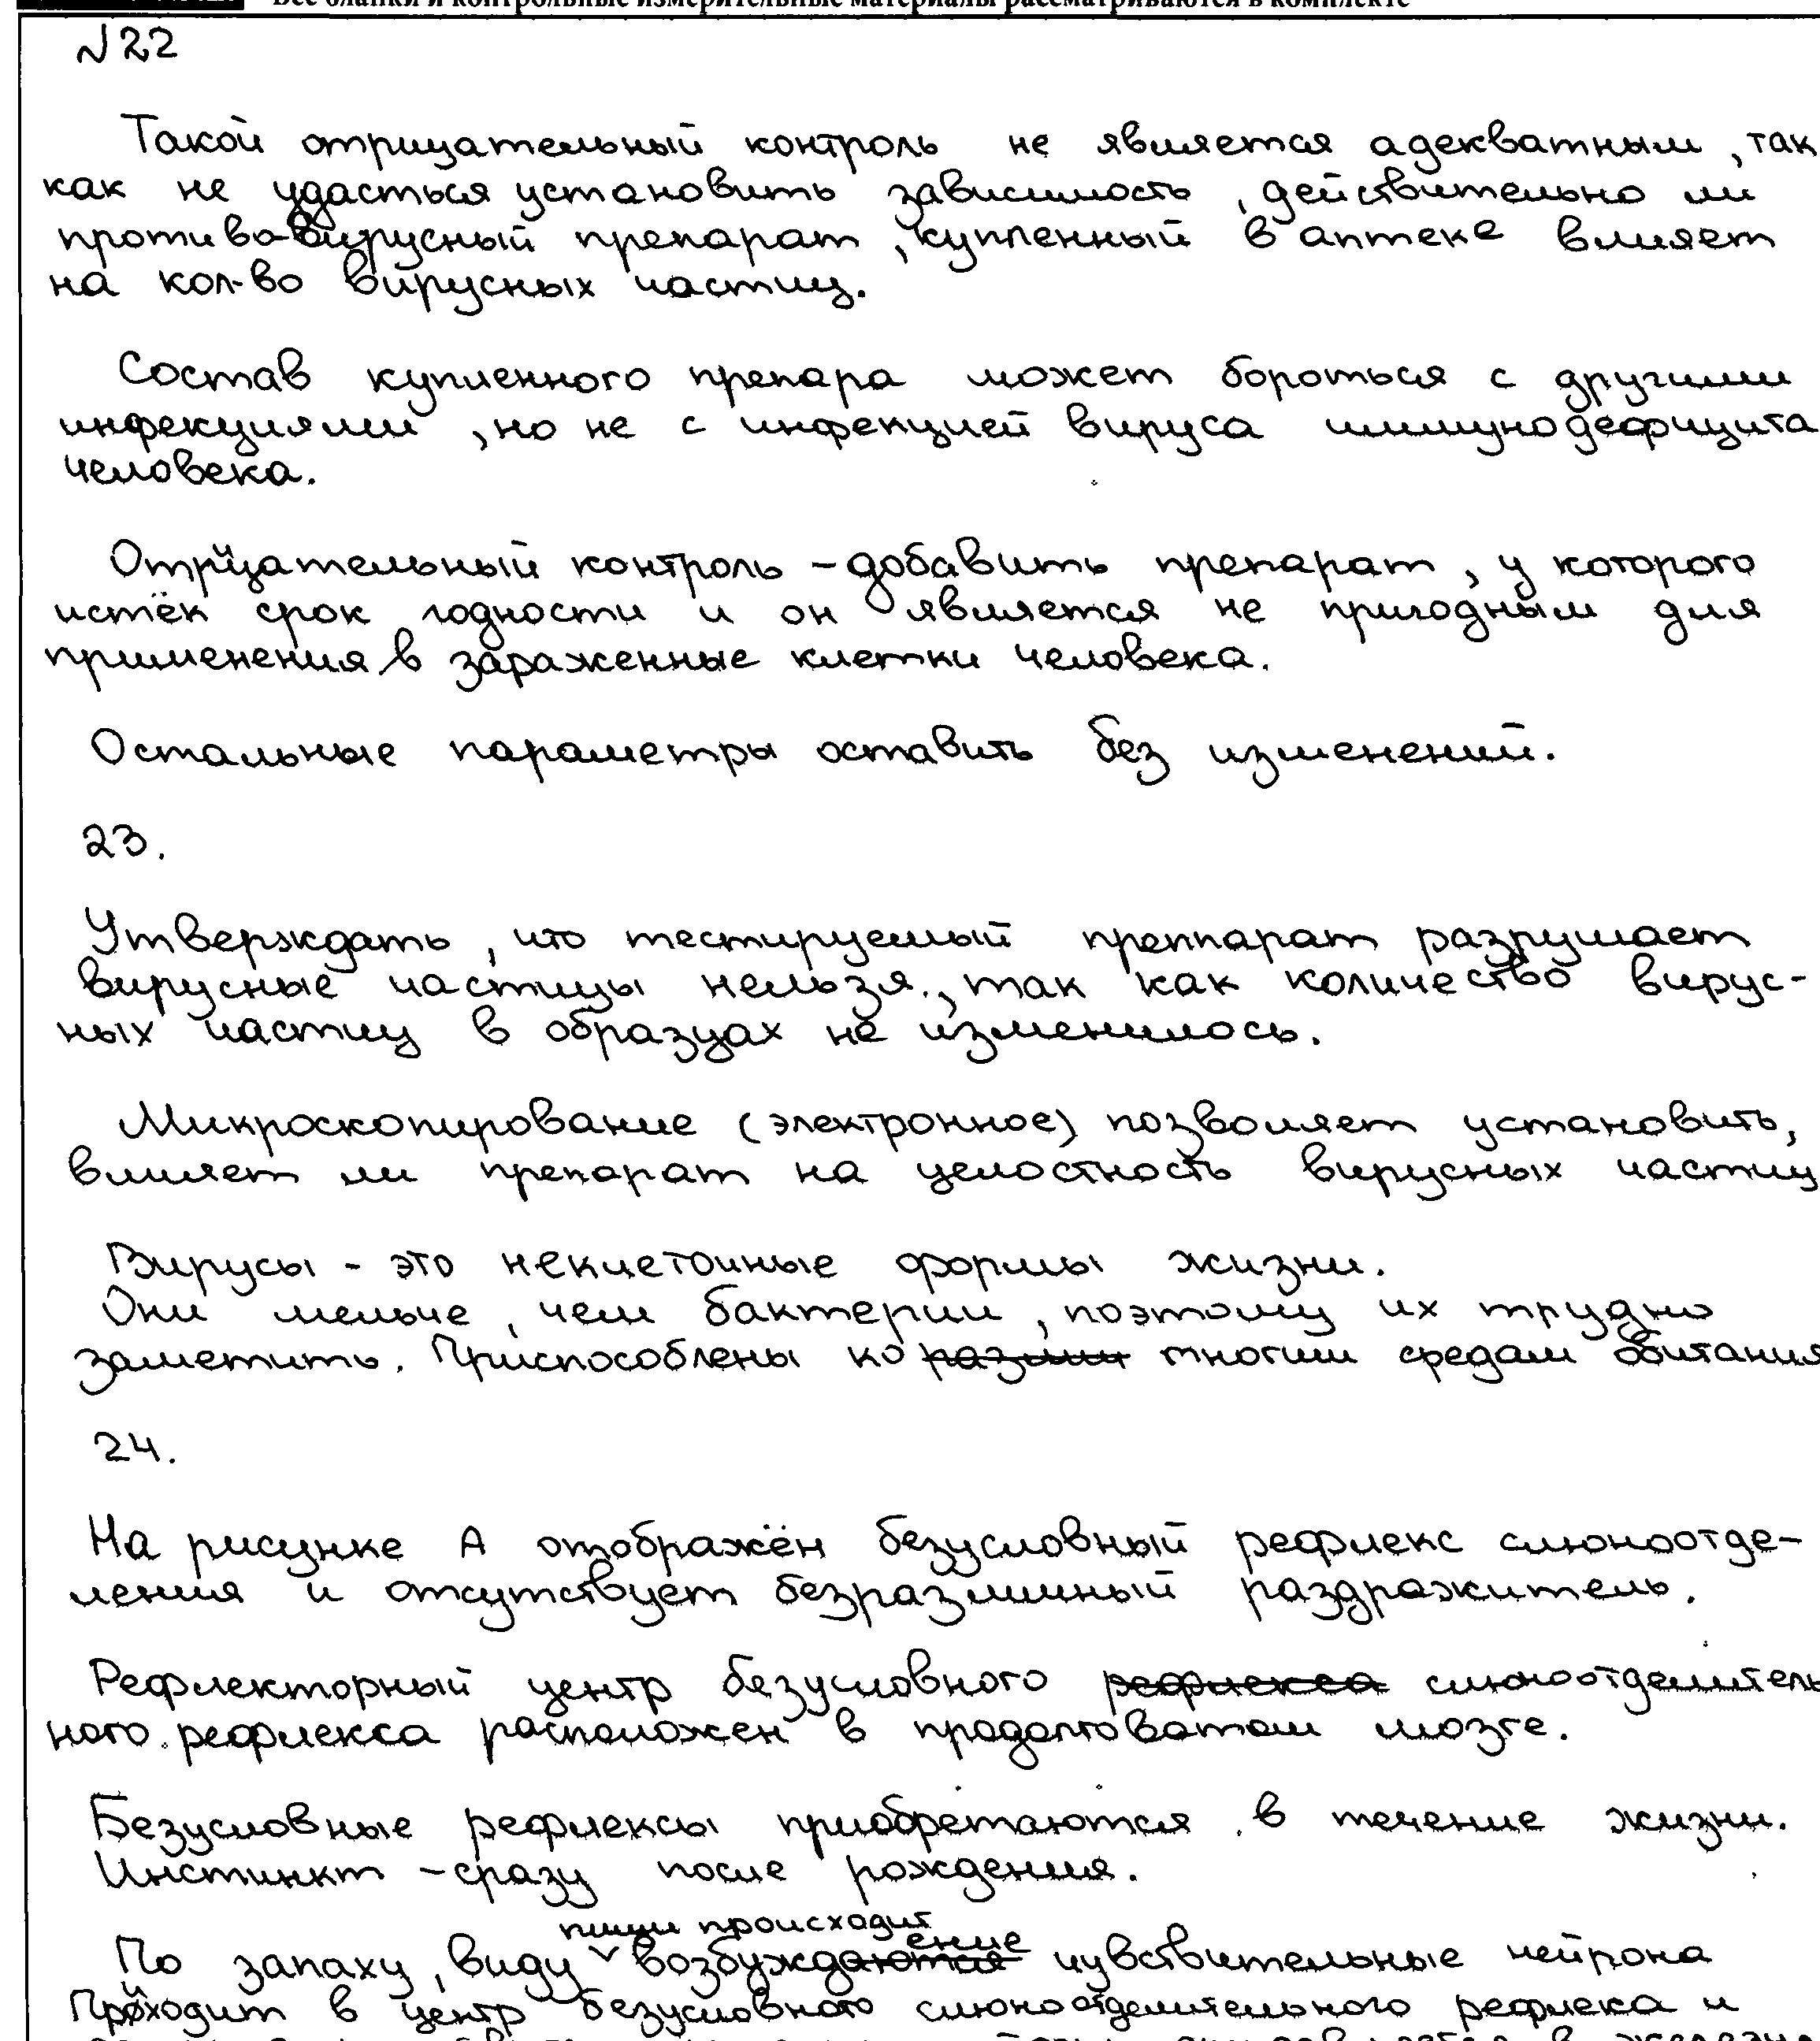 Все бланки и контрольные измерительные материалы рассматриваются в комплекте
№22
Такой отрицательный контроль не является адекватным, так
как не удасться установить зависимость, действительно ли
противо-вирусный препарат, купленный в аптеке влияет
на кол-во вирусных частиц.
Состав купленного препара может бороться с другими
инфекциями, но не с инфекцией вируса иммунодефицита
человека.
Отрицательный контроль – добавить препарат, у которого
истёк срок годности и он является не пригодным для
применения в зараженные клетки человека.
Остальные параметры оставить без изменений.
23.
Утверждать, что тестируемый преппарат разрушает
вирусные частицы нельзя, так как количество вирус-
ных частиц в образцах не изменилось.
Микроскопирование (электронное) позволяет установить,
влияет ли препарат на целостность вирусных частиц
Вирусы - это неклеточные формы жизни.
Они мельче, чем бактерии, поэтому их трудно
заметить. Приспособлены ко многим средам обитания
24.
На рисунке А отображён безусловный рефлекс слюноотде-
ления и отсутствует безразличный раздражитель.
Рефлекторный центр безусловного рефлекса слюноотделитель
ного рефлекса расположен в продолговатом мозге.
Безусловные рефлексы приобретаются в течение жизни.
Инстинкт – сразу после рождения.
пищи происходит
По запаху, виду возбуждение чувствительные нейрона
Приходит в центр безусловного слюноотделительного рефлека и